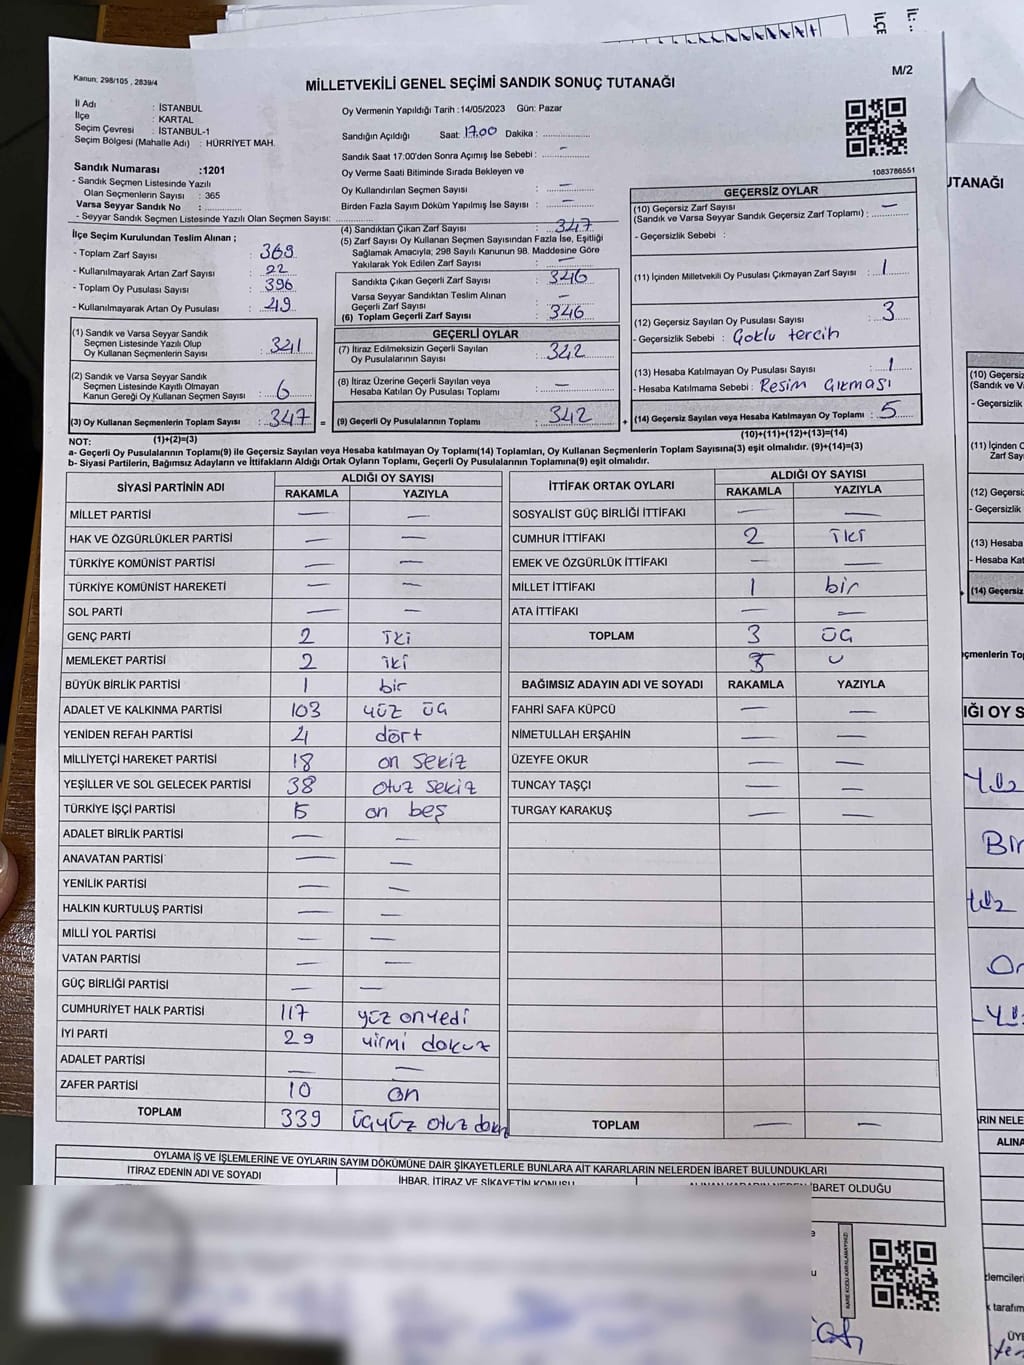 İL: ..
İLÇE
Kanun: 298/105 , 2839/4
MİLLETVEKİLİ GENEL SEÇİMİ SANDIK SONUÇ TUTANAĞI
M/2
İl Adı : İSTANBUL
İlçe : KARTAL
Seçim Çevresi : İSTANBUL-1
Seçim Bölgesi (Mahalle Adı) : HÜRRİYET MAH.
Sandık Numarası :1201
- Sandık Seçmen Listesinde Yazılı
Olan Seçmenlerin Sayısı : 365
Varsa Seyyar Sandık No :
- Seyyar Sandık Seçmen Listesinde Yazılı Olan Seçmen Sayısı:
Oy Vermenin Yapıldığı Tarih : 14/05/2023 Gün: Pazar
Sandığın Açıldığı Saat: 17.00 Dakika :
Sandık Saat 17:00'den Sonra Açımış İse Sebebi : –
Oy Verme Saati Bitiminde Sırada Bekleyen ve
Oy Kullandırılan Seçmen Sayısı : –
Birden Fazla Sayım Döküm Yapılmış İse Sayısı : –
1083786551
İlçe Seçim Kurulundan Teslim Alınan ;
- Toplam Zarf Sayısı : 369
- Kullanılmayarak Artan Zarf Sayısı : 22
- Toplam Oy Pusulası Sayısı : 396
- Kullanılmayarak Artan Oy Pusulası : 49
(1) Sandık ve Varsa Seyyar Sandık
Seçmen Listesinde Yazılı Olup
Oy Kullanan Seçmenlerin Sayısı : 341
(2) Sandık ve Varsa Seyyar Sandık
Seçmen Listesinde Kayıtlı Olmayan
Kanun Gereği Oy Kullanan Seçmen Sayısı : 6
(3) Oy Kullanan Seçmenlerin Toplam Sayısı : 347 =
(4) Sandıktan Çıkan Zarf Sayısı : 347
(5) Zarf Sayısı Oy Kullanan Seçmen Sayısından Fazla İse, Eşitliği
Sağlamak Amacıyla; 298 Sayılı Kanunun 98. Maddesine Göre
Yakılarak Yok Edilen Zarf Sayısı : –
Sandıkta Çıkan Geçerli Zarf Sayısı : 346
Varsa Seyyar Sandıktan Teslim Alınan
Geçerli Zarf Sayısı : –
(6) Toplam Geçerli Zarf Sayısı : 346
GEÇERLİ OYLAR
(7) İtiraz Edilmeksizin Geçerli Sayılan
Oy Pusulalarının Sayısı : 342
(8) İtiraz Üzerine Geçerli Sayılan veya
Hesaba Katılan Oy Pusulası Toplamı : –
(9) Geçerli Oy Pusulalarının Toplamı : 342 +
GEÇERSİZ OYLAR
(10) Geçersiz Zarf Sayısı –
(Sandık ve Varsa Seyyar Sandık Geçersiz Zarf Toplamı) :
- Geçersizlik Sebebi :
(11) İçinden Milletvekili Oy Pusulası Çıkmayan Zarf Sayısı : 1
(12) Geçersiz Sayılan Oy Pusulası Sayısı : 3
- Geçersizlik Sebebi : Çoklu tercih
(13) Hesaba Katılmayan Oy Pusulası Sayısı : 1
- Hesaba Katılmama Sebebi : Resim Çıkması
(14) Geçersiz Sayılan veya Hesaba Katılmayan Oy Toplamı : 5
NOT: (1)+(2)=(3) (10)+(11)+(12)+(13)=(14)
a- Geçerli Oy Pusulasının Toplamı(9) ile Geçersiz Sayılan veya Hesaba katılmayan Oy Toplamı(14) Toplamları, Oy Kullanan Seçmenlerin Toplam Sayısına(3) eşit olmalıdır. (9)+(14)=(3)
b- Siyasi Partilerin, Bağımsız Adayların ve İttifakların Aldığı Ortak Oyların Toplamı, Geçerli Oy Pusulalarının Toplamına(9) eşit olmalıdır.
SİYASİ PARTİNİN ADI ALDIĞI OY SAYISI
RAKAMLA YAZIYLA
MİLLET PARTİSİ – –
HAK VE ÖZGÜRLÜKLER PARTİSİ – –
TÜRKİYE KOMÜNİST PARTİSİ – –
TÜRKİYE KOMÜNİST HAREKETİ – –
SOL PARTİ – –
GENÇ PARTİ 2 iki
MEMLEKET PARTİSİ 2 iki
BÜYÜK BİRLİK PARTİSİ 1 bir
ADALET VE KALKINMA PARTİSİ 103 yüz üç
YENİDEN REFAH PARTİSİ 4 dört
MİLLİYETÇİ HAREKET PARTİSİ 18 on sekiz
YEŞİLLER VE SOL GELECEK PARTİSİ 38 otuz sekiz
TÜRKİYE İŞÇİ PARTİSİ 15 on beş
ADALET BİRLİK PARTİSİ – –
ANAVATAN PARTİSİ – –
YENİLİK PARTİSİ – –
HALKIN KURTULUŞ PARTİSİ – –
MİLLİ YOL PARTİSİ – –
VATAN PARTİSİ – –
GÜÇ BİRLİĞİ PARTİSİ – –
CUMHURİYET HALK PARTİSİ 117 yüz onyedi
İYİ PARTİ 29 yirmi dokuz
ADALET PARTİSİ – –
ZAFER PARTİSİ 10 on
TOPLAM 339 üçyüz otuz dokuz
İTTİFAK ORTAK OYLARI ALDIĞI OY SAYISI
RAKAMLA YAZIYLA
SOSYALİST GÜÇ BİRLİĞİ İTTİFAKI – –
CUMHUR İTTİFAKI 2 iki
EMEK VE ÖZGÜRLÜK İTTİFAKI – –
MİLLET İTTİFAKI 1 bir
ATA İTTİFAKI – –
TOPLAM 3 üç
BAĞIMSIZ ADAYIN ADI VE SOYADI RAKAMLA YAZIYLA
FAHRİ SAFA KÜPCÜ – –
NİMETULLAH ERŞAHİN – –
ÜZEYFE OKUR – –
TUNCAY TAŞÇI – –
TURGAY KARAKUŞ – –
TOPLAM – –
OYLAMA İŞ VE İŞLEMLERİNE VE OYLARIN SAYIM DÖKÜMÜNE DAİR ŞİKAYETLERLE BUNLARA AİT KARARLARIN NELERDEN İBARET BULUNDUKLARI
İTİRAZ EDENİN ADI VE SOYADI İHBAR, İTİRAZ VE ŞİKAYETİN KONUSU ALINAN KARARIN NEDEN İBARET OLDUĞU
KARE KODU KARALAMAYINIZ!
UTANAĞI
(10) Geçersiz
(Sandık ve Va
- Geçersizlik
(11) İçinden
Zarf Say
(12) Geçersiz
- Geçersizlik
(13) Hesaba
- Hesaba Kat
(14) Geçersiz
eçmenlerin To
IĞI OY S
Yüz
Bir
On
ARIN NELE
ALINA
demcileri
k tarafım
ÜYE